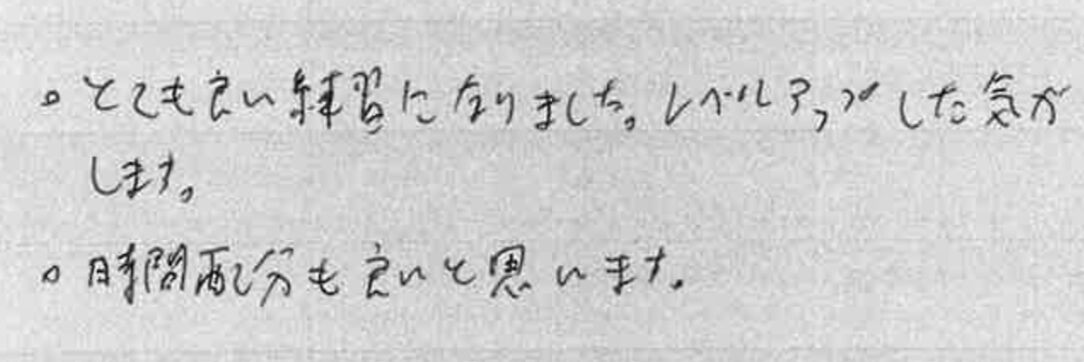 。とても良い練習になりました。レベルアップした気が
します。
。時間配分も良いと思います。